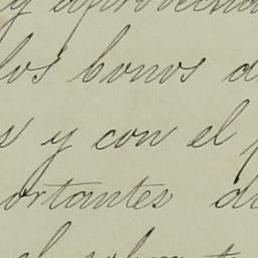 y aprovecha
los bonos d
s y con el p
ortantes d
el